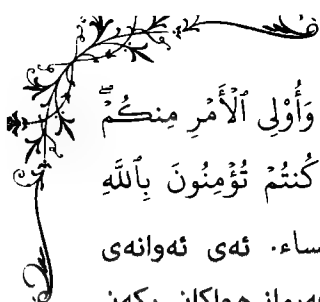 وَأُوْلِى ٱلْأَمْرِ مِنكُمْۖ
كُنتُمْ تُؤْمِنُونَ بِٱللَّهِ
ساء. ئەی ئەوانەی